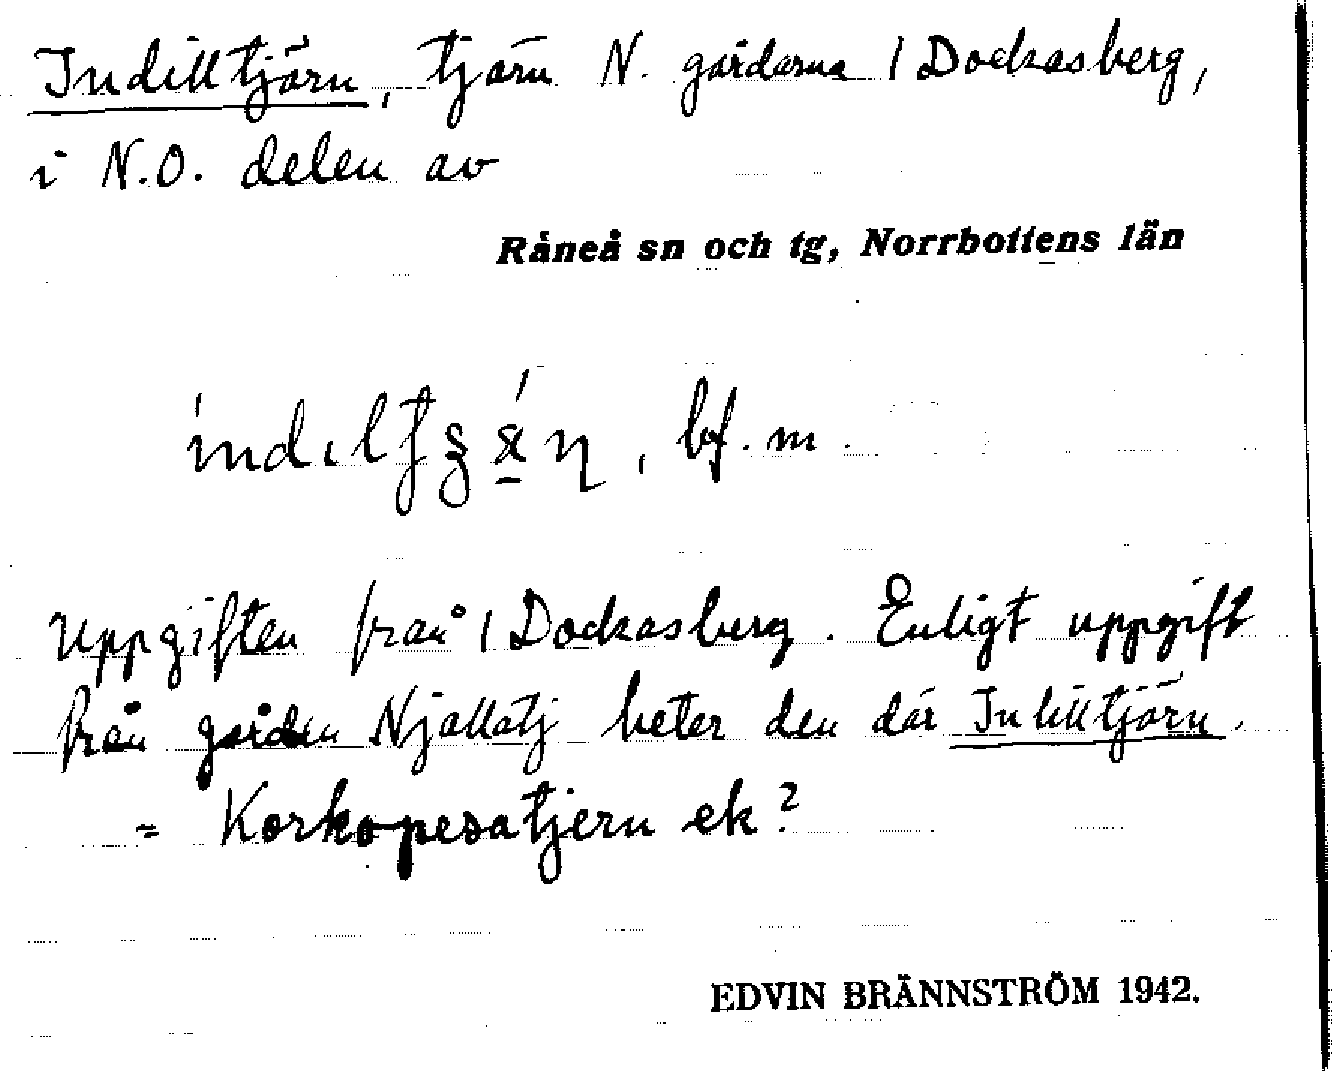 Indilltjärn, tjärn N. gårdarna i Dockasberg,
i N.O. delen av
Råneå sn och tg, Norrbottens län
bf. m.
Uppgiften från i Dockasberg. Enligt uppgift
från gården Njallatj heter den där Inlilltjärn.
= Korkopesatjern ek?
EDVIN BRÄNNSTRÖM 1942.